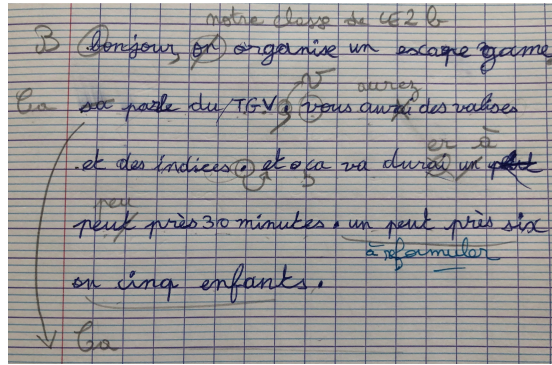 notre classe de CE2 b
B bonjour, on organise un escape game
Ca sa parle du TGV. V vous aurai des valises
aurez
et des indices. et ça va durai un peut
er à
peut près 30 minutes. un peut près six
peu
à reformuler
on cinq enfants.
Ca